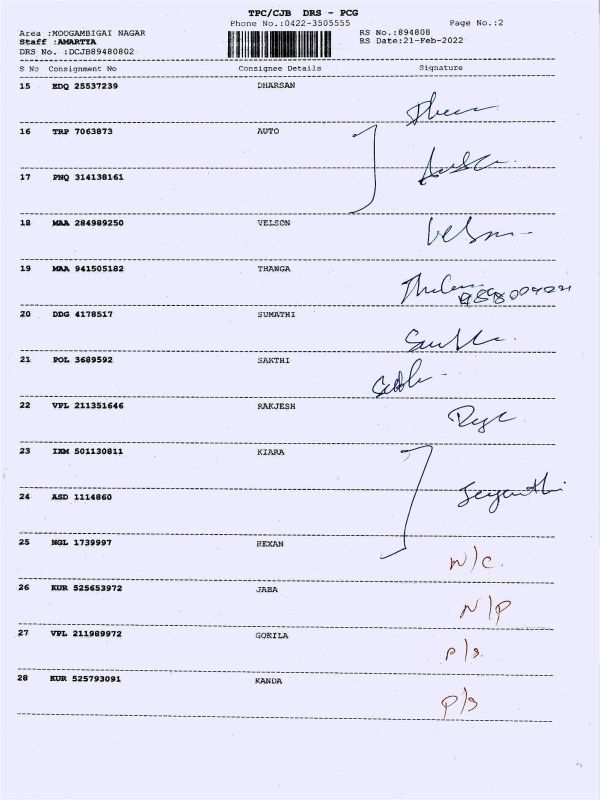 TPC/CJB DRS - PCG
Phone No.:0422-3505555 Page No.:2
Area :MOOGAMBIGAI NAGAR RS No.:894808
Staff :AMARTYA RS Date:21-Feb-2022
DRS No. :DCJB89480802
S No Consignment No Consignee Details Signature
15 EDQ 25537239 DHARSAN
16 TRP 7063873 AUTO
17 PNQ 314138161
18 MAA 284989250 VELSON Velson
19 MAA 941505182 THANGA
20 DDG 4178517 SUMATHI
21 POL 3689592 SAKTHI
22 VPL 211351646 RAKJESH
23 IXM 501130811 KIARA
24 ASD 1114860 Jeyanthi
25 NGL 1739997 REXAN N/C.
26 KUR 525653972 JABA N/P
27 VPL 211989972 GOKILA P/S.
28 KUR 525793091 KANDA P/S